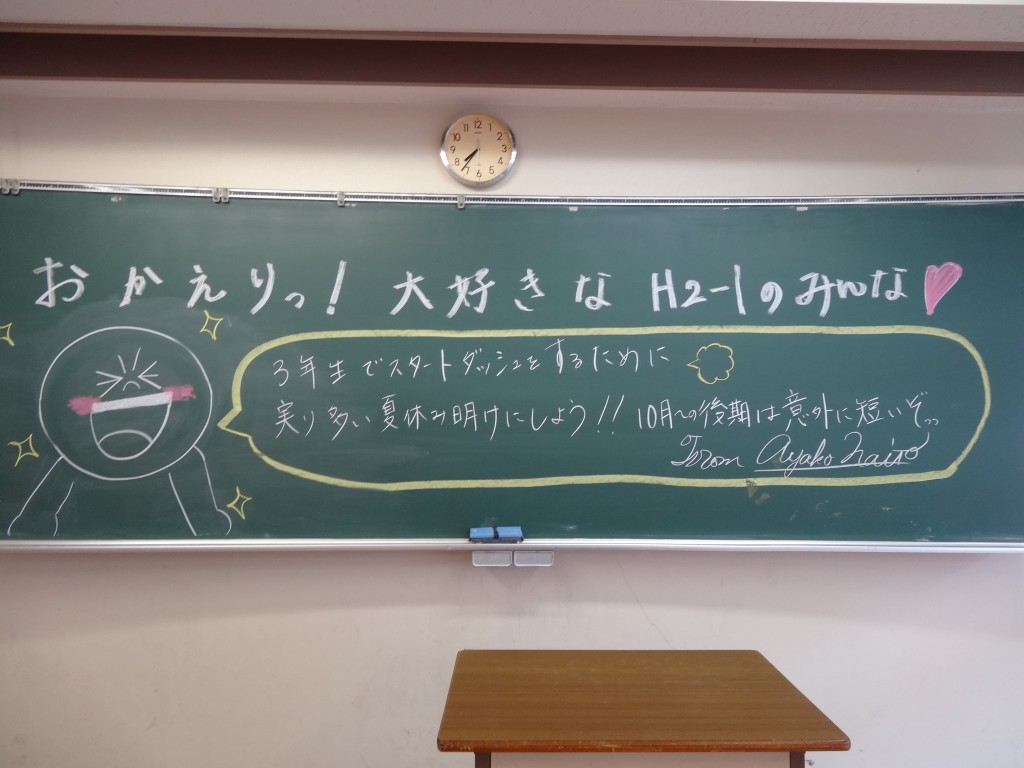 12
1
2
3
4
5
6
7
8
9
10
11
おかえりっ! 大好きな H2-1のみんな
3年生でスタートダッシュをするために
実り多い夏休み明けにしよう!! 10月〜の後期は意外に短いぞっ
From Ayako Naito